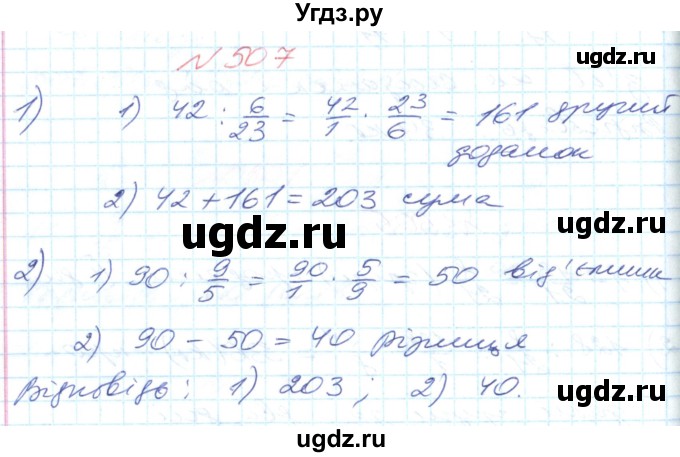 Угдз.ру
N 507
ugdz.ru ugdz.ru
1) 1) 42 : 6/23 = 42/1 · 23/6 = 161 другий
доданок
ugdz.ru
2) 42 + 161 = 203 сума
ugdz.ru
ugdz.ru
2) 1) 90 : 9/5 = 90/1 · 5/9 = 50 від'ємник
ugdz.ru
2) 90 - 50 = 40 різниця
Відповідь: 1) 203; 2) 40.
ugdz.ru ugdz.ru
ugdz.ru